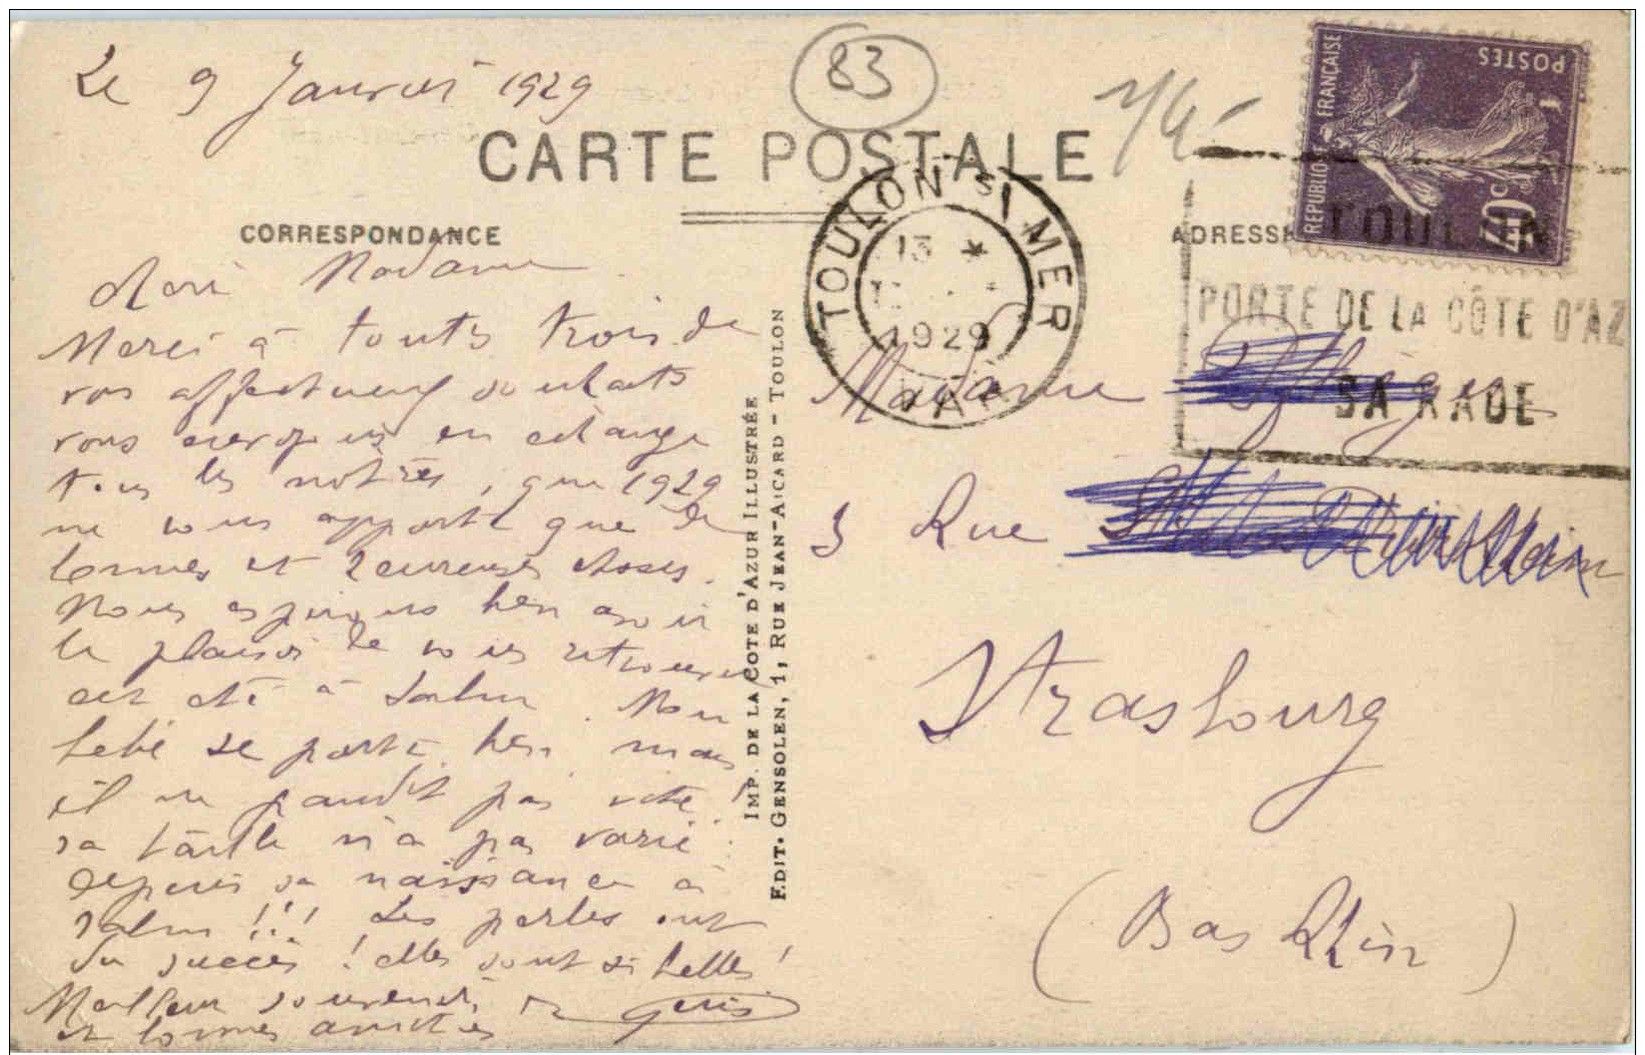 Le 9 Janvier 1929
83
CARTE POSTALE
CORRESPONDANCE
Madame
Merci à toutes trois de
vos affectueux souhaits
vous en échange
tous les nôtres, que 1929
ne vous apporte que de
bonnes et heureuses choses.
Nous espérons bien avoir
le plaisir de vous retrouver
cet été à Salm. Mon
bébé se porte bien mais
il ne grandit pas vite !
sa taille n'a pas varié
depuis sa naissance à
Salm !!! Les perles ont
du succès ! elles sont si belles !
Meilleur souvenir
et bonnes amitiés
IMP. DE LA COTE D'AZUR ILLUSTRÉE
EDIT. GENSOLEN, 1, RUE JEAN-AICARD - TOULON
TOULON S/ MER
13 *
1929
VAR
REPUBLIQUE FRANÇAISE
POSTES
40c
ADRESSE
TOULON
PORTE DE LA CÔTE D'AZ
SA RADE
Madame
3 Rue
Strasbourg
(Bas Rhin)